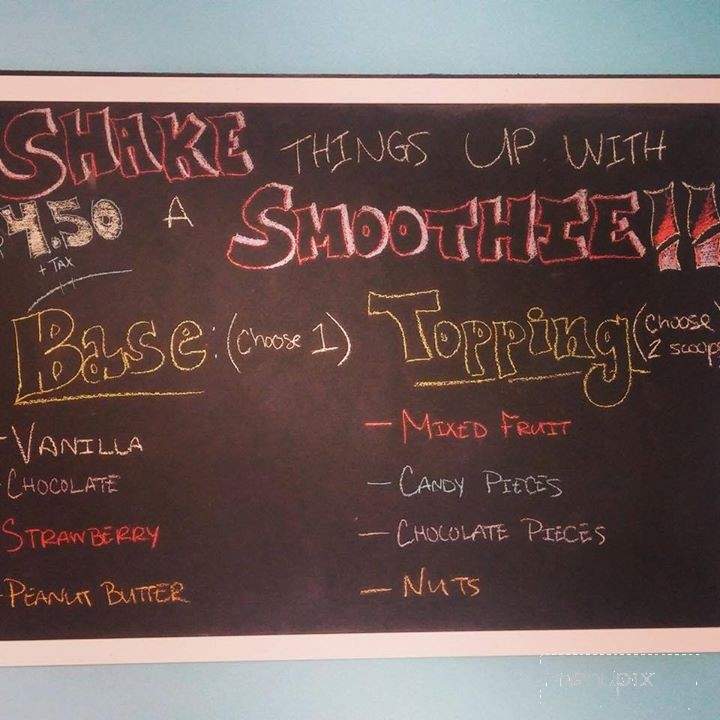 SHAKE THINGS UP WITH
$4.50 A SMOOTHIE!!
+ TAX
Base: (Choose 1)
Topping (Choose 2 scoops
- VANILLA
CHOCOLATE
STRAWBERRY
- PEANUT BUTTER
- MIXED FRUIT
- CANDY PIECES
- CHOCOLATE PIECES
- NUTS